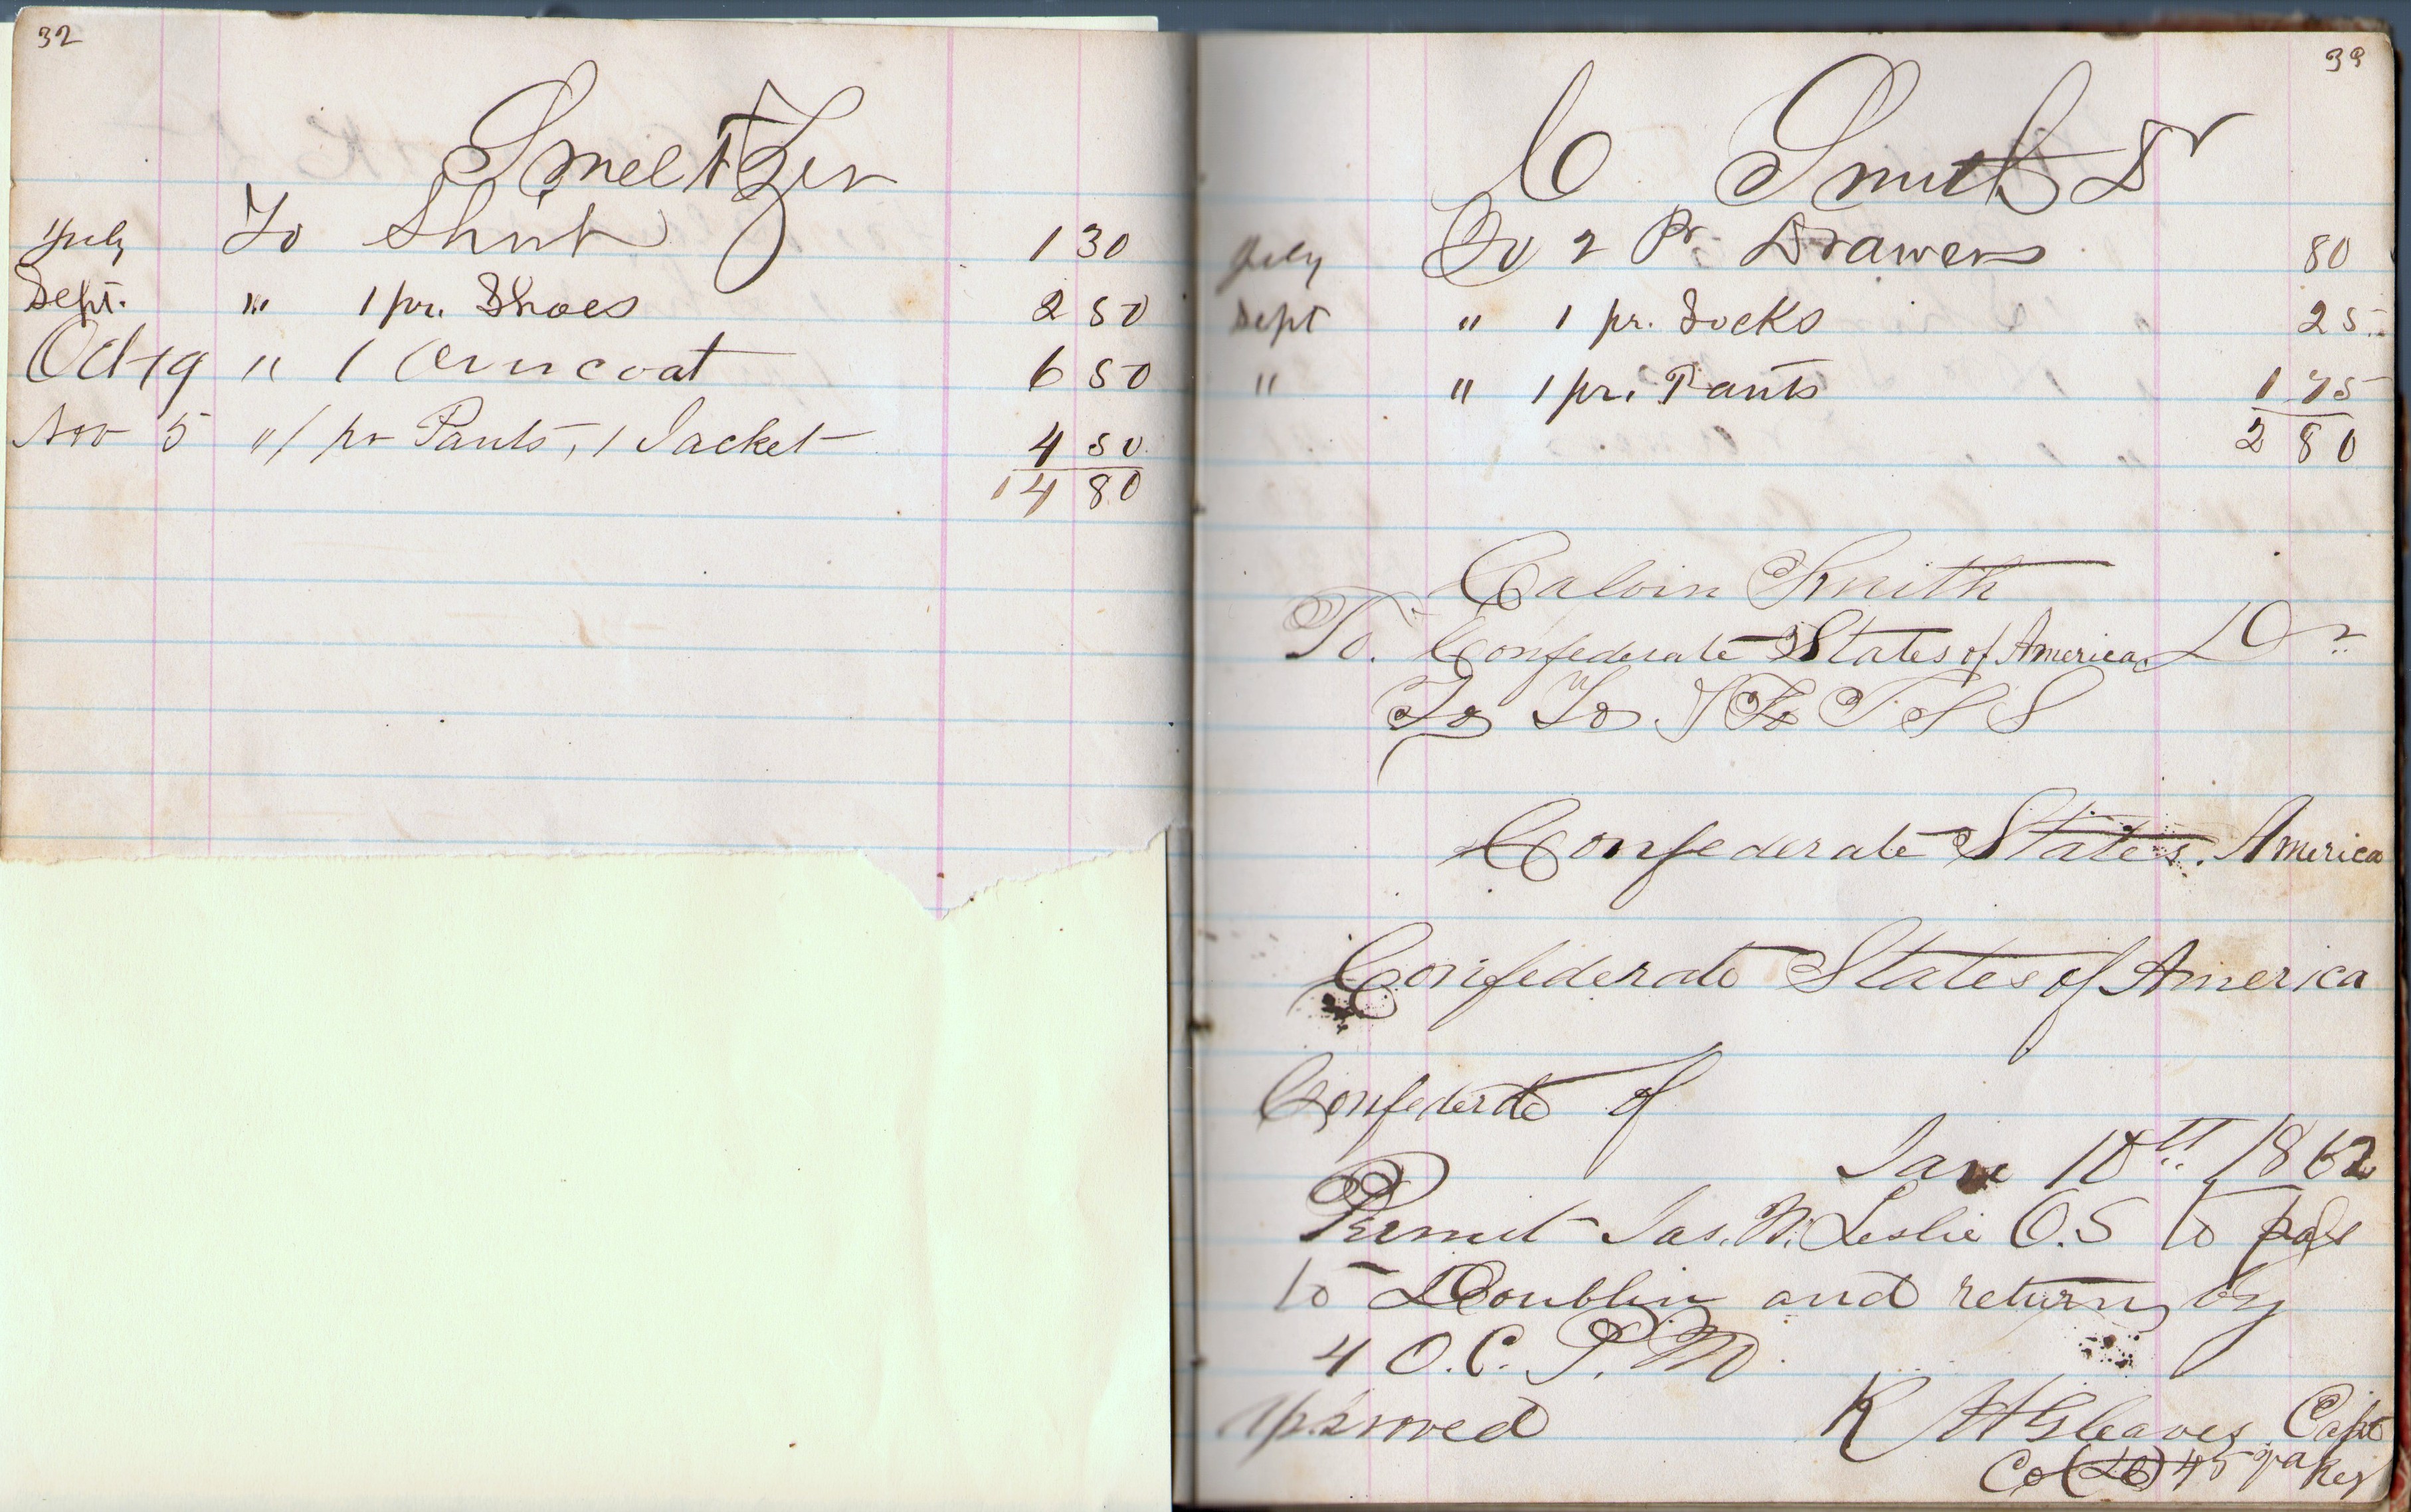 32
Smeltzer
July To Shirt 1 30
Sept. " 1 pr. Shoes 2 50
Oct 19 " 1 Overcoat 6 50
Nov 5 " 1 pr Pants, 1 Jacket 4 50
14 80
33
C Smith Dr
July To 2 Pr Drawers 80
Sept " 1 pr. Socks 25
" " 1 pr. Pants 1 75
2 80
Calvin Smith
To. Confederate States of America Dr
To To
Confederate States. America
Confederate States of America
Confederate of
Jan 10th 1862
Permit Jas. W. Leslie O.S to pass
to Doublin and return by
4 O.C. P.M
Approved K H Gleaves Capt
Co 45 Va Reg